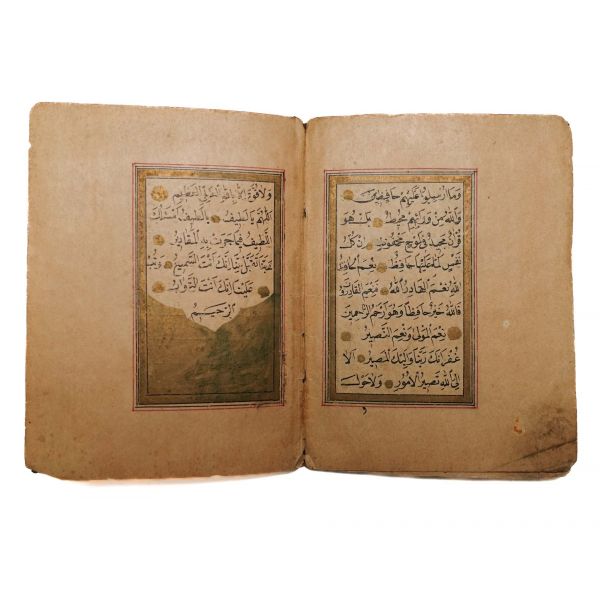 وَمَا اُرْسِلُوا عَلَيْهِمْ حَافِظِينَ
وَاللّٰهُ مِنْ وَرَائِهِمْ مُحِيطٌ بَلْ هُوَ
قُرْاٰنٌ مَجِيدٌ فِى لَوْحٍ مَحْفُوظٍ اِنْ كُلُّ
نَفْسٍ لَمَّا عَلَيْهَا حَافِظٌ نِعْمَ حَافِظُ
اللّٰهُ نِعْمَ الْقَادِرُ اللّٰهُ فَنِعْمَ الْقَادِرُونَ
فَاللّٰهُ خَيْرٌ حَافِظًا وَهُوَ اَرْحَمُ الرَّاحِمِينَ
نِعْمَ الْمَوْلٰى وَنِعْمَ النَّصِيرُ
غُفْرَانَكَ رَبَّنَا وَاِلَيْكَ الْمَصِيرُ اَلَا
اِلَى اللّٰهِ تَصِيرُ الْاُمُورُ وَلَا حَوْلَ
وَلَا قُوَّةَ اِلَّا بِاللّٰهِ الْعَلِىِّ الْعَظِيمِ
اَللّٰهُمَّ يَا لَطِيفُ يَا لَطِيفُ اَسْئَلُكَ
اللُّطْفَ فِيمَا جَرَتْ بِهِ الْمَقَادِيرُ
تَقَبَّلْ مِنَّا اِنَّكَ اَنْتَ السَّمِيعُ وَتُبْ
عَلَيْنَا اِنَّكَ اَنْتَ التَّوَّابُ
الرَّحِيمُ